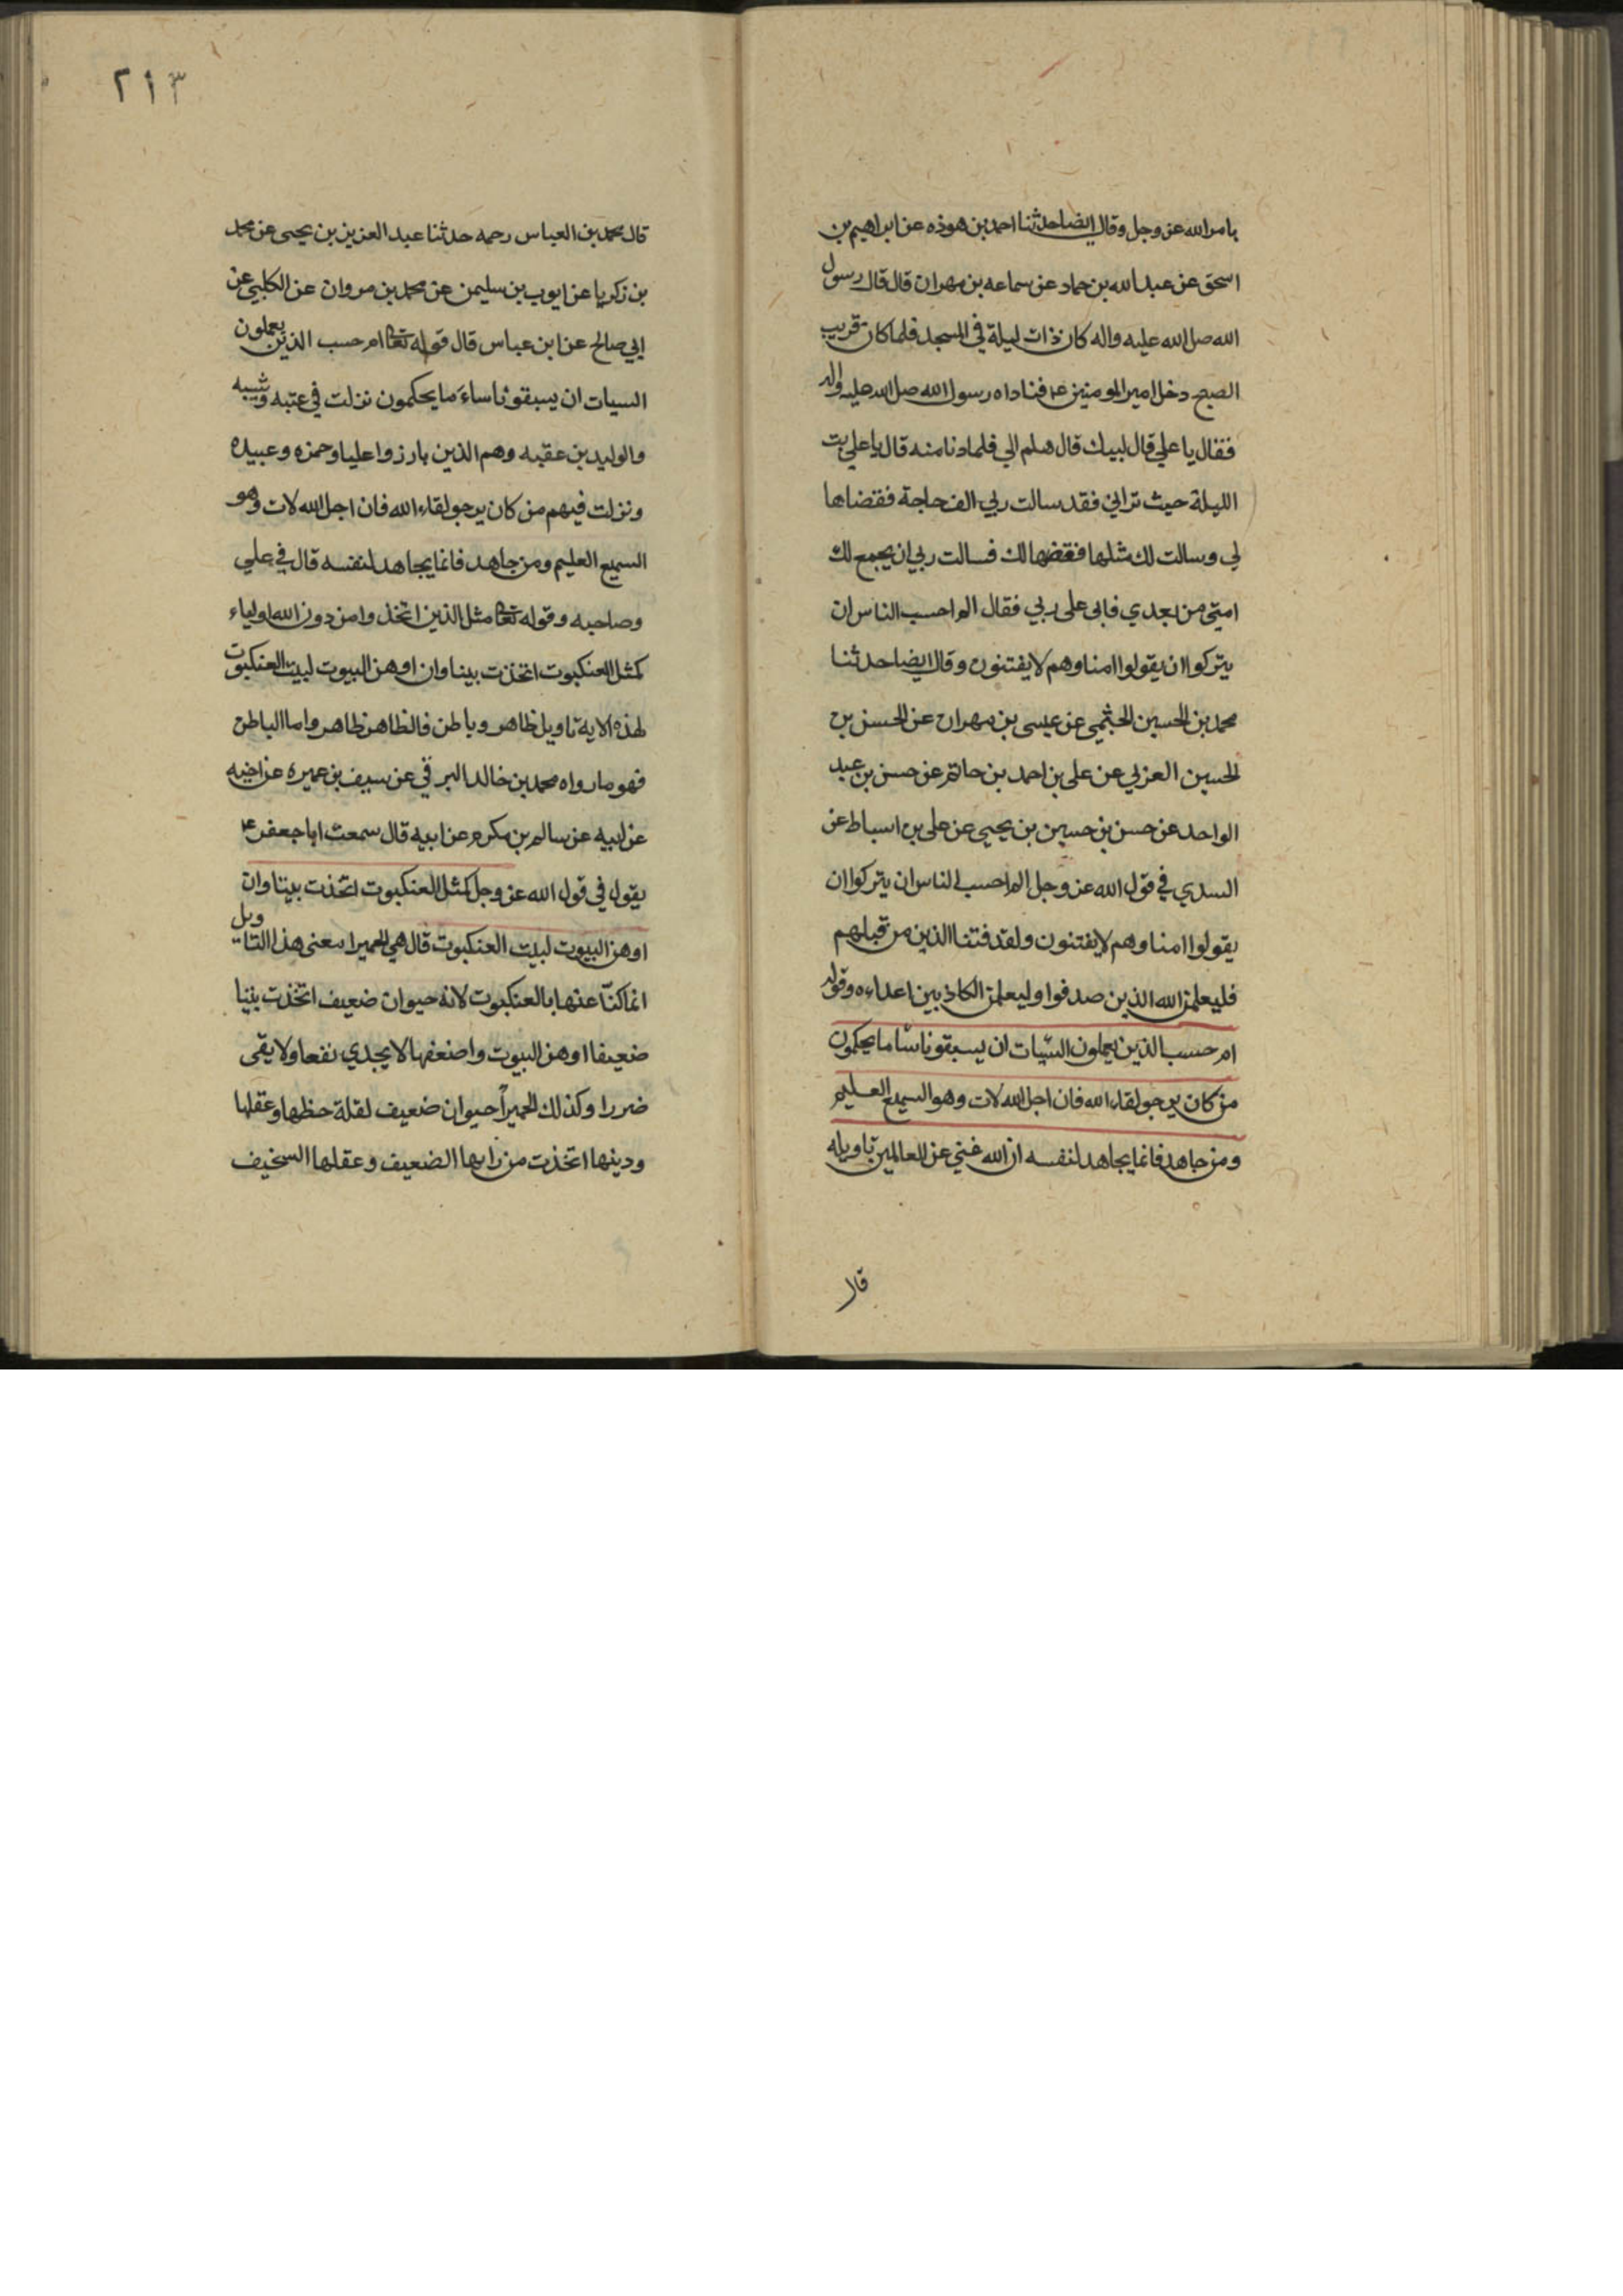 بامر الله عز وجل وقال ايضا حدثنا احمد بن هوذه عن ابراهيم بن
اسحق عن عبد الله بن حماد عن سماعه بن مهران قال قال رسول
الله صل الله عليه واله كان ذات ليلة في المسجد فلما كان قريب
الصبح دخل امير المومنين ع فناداه رسول الله صل الله عليه واله
فقال يا علي قال لبيك قال هلم الي فلما دنا منه قال يا علي بت
الليلة حيث تراني فقد سالت ربي الف حاجة فقضاها
لي وسالت لك مثلها فقضها لك فسالت ربي ان يجمع لك
امتي من بعدي فابى على ربي فقال الم احسب الناس ان
يتركوا ان يقولوا امنا وهم لا يفتنون وقال ايضا حدثنا
محمد بن الحسين الخثمي عن عيسى بن مهران عن الحسن بن
الحسين العرني عن على بن احمد بن حاتم عن حسن بن عبد
الواحد عن حسن بن حسين بن يحيى عن على بن اسباط عن
السدي في قول الله عز وجل الم احسب الناس ان يتركوا ان
يقولوا امنا وهم لا يفتنون ولقد فتنا الذين من قبلهم
فليعلمن الله الذين صدقوا وليعلمن الكاذبين اعداءه وقوله
ام حسب الذين يعملون السيات ان يسبقونا سا ما يحكمون
من كان يرجو لقاء الله فان اجل الله لات وهو السميع العليم
ومن جاهد فانما يجاهد لنفسه ان الله غني عن العالمين تاويله
قال
٢١٣
قال محمد بن العباس رحمه حدثنا عبد العزيز بن يحيى عن محمد
بن زكريا عن ايوب بن سليمن عن محمد بن مروان عن الكلبي عن
ابي صالح عن ابن عباس قال قوله تعا ام حسب الذين يعملون
السيات ان يسبقونا ساء ما يحكمون نزلت في عتبه وشيبه
والوليد بن عقبه وهم الذين بارزوا عليا وحمزه وعبيده
ونزلت فيهم من كان يرجو لقاء الله فان اجل الله لات وهو
السميع العليم ومن جاهد فانما يجاهد لنفسه قال في علي
وصاحبه وقوله تعا مثل الذين اتخذوا من دون الله اولياء
كمثل العنكبوت اتخذت بيتا وان اوهن البيوت لبيت العنكبوت
لهذه الاية تاويل ظاهر وباطن فالظاهر ظاهر واما الباطن
فهو ما رواه محمد بن خالد البرقي عن سيف بن عميره عن اخيه
عن ابيه عن سالم بن مكرم عن ابيه قال سمعت ابا جعفر ع
يقول في قول الله عز وجل كمثل العنكبوت اتخذت بيتا وان
اوهن البيوت لبيت العنكبوت قال هي الحميرا معنى هذا التاويل
انما كنّا عنها بالعنكبوت لانه حيوان ضعيف اتخذت بيتا
ضعيفا اوهن البيوت واضعفها لا يجدي نفعا ولا يقى
ضررا وكذلك الحميرا حيوان ضعيف لقلة حظها وعقلها
ودينها اتخذت من رايها الضعيف وعقلها السخيف